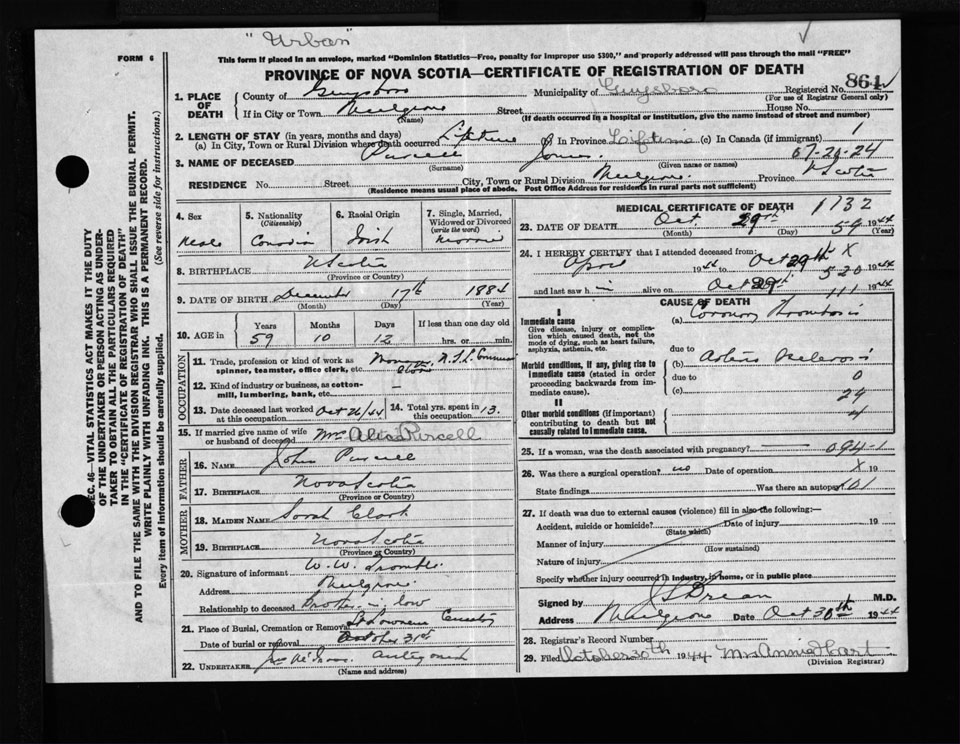 "Urban"
FORM 6
This form if placed in an envelope, marked "Dominion Statistics—Free, penalty for improper use $300," and properly addressed will pass through the mail "FREE"
PROVINCE OF NOVA SCOTIA—CERTIFICATE OF REGISTRATION OF DEATH
1. PLACE OF DEATH
County of Guysboro Municipality of Guysboro Registered No. 861
(For use of Registrar General only)
If in City or Town Mulgrave Street House No.
(Name) (If death occurred in a hospital or institution, give the name instead of street and number)
2. LENGTH OF STAY (in years, months and days)
(a) In City, Town or Rural Division where death occurred Lifetime (b) In Province Lifetime (c) In Canada (if immigrant) 1
3. NAME OF DECEASED Purcell James 67-28-24
(Surname) (Given name or names)
RESIDENCE No. Street City, Town or Rural Division Mulgrave Province N Scotia
(Residence means usual place of abode. Post Office Address for residents in rural parts not sufficient)
4. Sex
Male
5. Nationality
(Citizenship)
Canadian
6. Racial Origin
Irish
7. Single, Married, Widowed or Divorced
(write the word)
Married
8. BIRTHPLACE N Scotia
(Province or Country)
9. DATE OF BIRTH December 17th 1884
(Month) (Day) (Year)
10. AGE in
Years Months Days If less than one day old
59 10 12 hrs. or min.
OCCUPATION
11. Trade, profession or kind of work as spinner, teamster, office clerk, etc. Manager N.S.L. Government Store
12. Kind of industry or business, as cotton-mill, lumbering, bank, etc.
13. Date deceased last worked at this occupation Oct 26/44
14. Total yrs. spent in this occupation 13.
15. If married give name of wife or husband of deceased Mrs Alice Purcell
FATHER
16. NAME John Purcell
17. BIRTHPLACE Nova Scotia
(Province or Country)
MOTHER
18. MAIDEN NAME Sarah Clark
19. BIRTHPLACE Nova Scotia
(Province or Country)
20. Signature of informant W. W.
Address Mulgrave
Relationship to deceased Brother in law
21. Place of Burial, Cremation or Removal St Lawrence Cemetery
Date of burial or removal October 31st
22. UNDERTAKER Antigonish
(Name and address)
MEDICAL CERTIFICATE OF DEATH 1732
23. DATE OF DEATH Oct 29th 59 1944
(Month) (Day) (Year)
24. I HEREBY CERTIFY that I attended deceased from: X
April 1944 to Oct 29th 520 1944
and last saw him alive on Oct 29th 111 1944
CAUSE OF DEATH
I
Immediate cause
Give disease, injury or complication which caused death, not the mode of dying, such as heart failure, asphyxia, asthenia, etc.
(a) Coronary Thrombosis
due to
Morbid conditions, if any, giving rise to immediate cause (stated in order proceeding backwards from immediate cause).
(b) Arterio Sclerosis
due to 0
(c) 24
II
Other morbid conditions (if important) contributing to death but not causally related to immediate cause. 4
25. If a woman, was the death associated with pregnancy? 094-1
26. Was there a surgical operation? no Date of operation X 19
State findings Was there an autopsy? 101
27. If death was due to external causes (violence) fill in also the following:—
Accident, suicide or homicide? Date of injury 19
(State which)
Manner of injury
(How sustained)
Nature of injury
Specify whether injury occurred in industry, in home, or in public place
Signed by M.D.
Address Mulgrave Date Oct 30th 1944
28. Registrar's Record Number
29. Filed October 30th 1944 Mrs Annie Hart
(Division Registrar)
SEC. 46—VITAL STATISTICS ACT MAKES IT THE DUTY
OF THE UNDERTAKER OR PERSON ACTING AS UNDER-
TAKER TO OBTAIN ALL THE PARTICULARS REQUIRED
IN THE "CERTIFICATE OF REGISTRATION OF DEATH"
AND TO FILE THE SAME WITH THE DIVISION REGISTRAR WHO SHALL ISSUE THE BURIAL PERMIT.
WRITE PLAINLY WITH UNFADING INK. THIS IS A PERMANENT RECORD.
Every item of information should be carefully supplied. (See reverse side for instructions.)